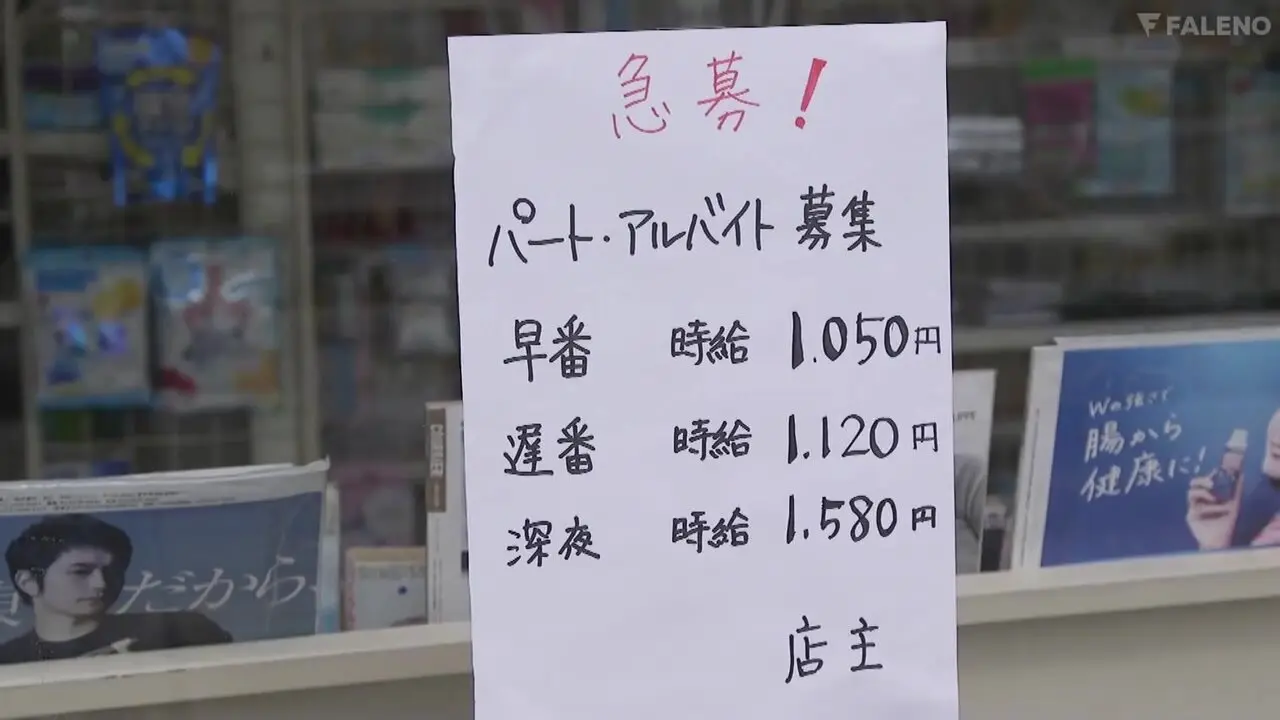 FALENO
急募！
パート・アルバイト募集
早番 時給 1.050円
遅番 時給 1.120円
深夜 時給 1.580円
店主
だから、
Wの強さで
腸から
健康に!